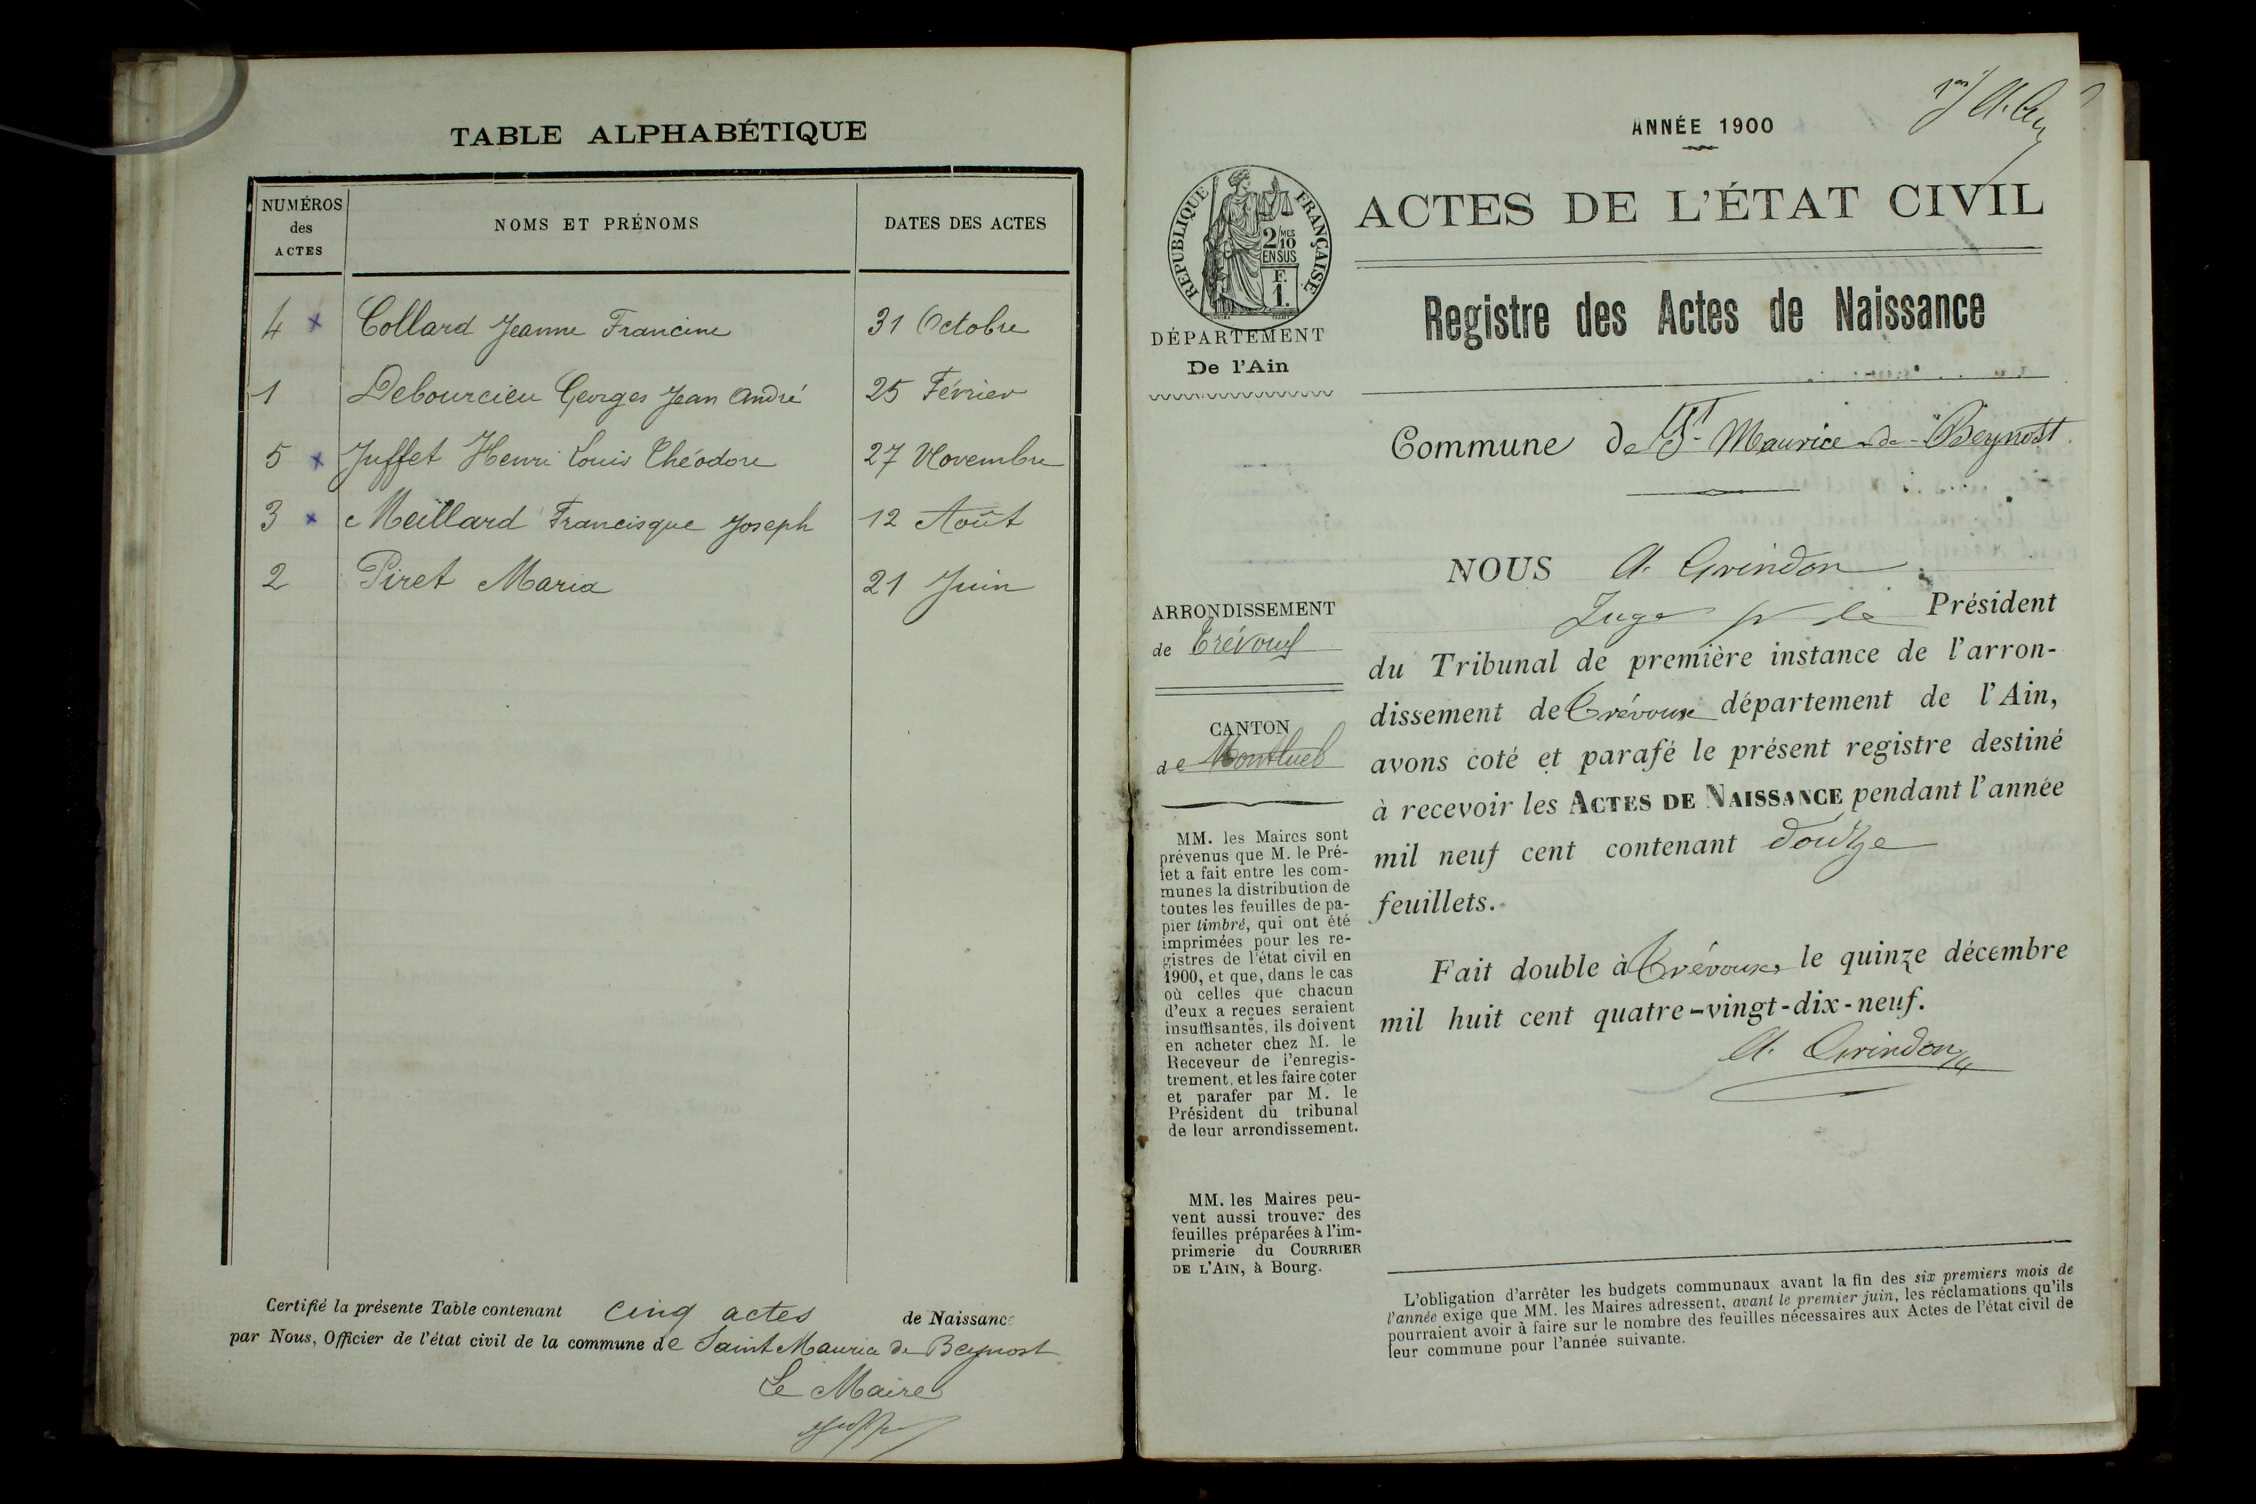 TABLE ALPHABÉTIQUE
NUMÉROS des ACTES
NOMS ET PRÉNOMS
DATES DES ACTES
4 x Collard Jeanne Francine 31 Octobre
1 Debourcieu Georges Jean André 25 Février
5 x Juffet Henri Louis Théodore 27 Novembre
3 x Meillard Francisque Joseph 12 Août
2 Piret Maria 21 Juin
Certifié la présente Table contenant cinq actes de Naissance
par Nous, Officier de l'état civil de la commune de Saint Maurice de Beynost
Le Maire
ANNÉE 1900
RÉPUBLIQUE FRANÇAISE
2/10 MES
EN SUS
F.
1.
ACTES DE L'ÉTAT CIVIL
Registre des Actes de Naissance
DÉPARTEMENT
De l'Ain
Commune de St-Maurice-de-Beynost
ARRONDISSEMENT
de Trévoux
CANTON
de Montluel
MM. les Maires sont
prévenus que M. le Pré-
fet a fait entre les com-
munes la distribution de
toutes les feuilles de pa-
pier timbré, qui ont été
imprimées pour les re-
gistres de l'état civil en
1900, et que, dans le cas
où celles que chacun
d'eux a reçues seraient
insuffisantes, ils doivent
en acheter chez M. le
Receveur de l'enregis-
trement, et les faire coter
et parafer par M. le
Président du tribunal
de leur arrondissement.
MM. les Maires peu-
vent aussi trouver des
feuilles préparées à l'im-
primerie du COURRIER
DE L'AIN, à Bourg.
NOUS A. Grindon
Juge pr le Président
du Tribunal de première instance de l'arron-
dissement de Trévoux département de l'Ain,
avons coté et parafé le présent registre destiné
à recevoir les ACTES DE NAISSANCE pendant l'année
mil neuf cent contenant douze
feuillets.
Fait double à Trévoux, le quinze décembre
mil huit cent quatre-vingt-dix-neuf.
A. Grindon
L'obligation d'arrêter les budgets communaux avant la fin des six premiers mois de
l'année exige que MM. les Maires adressent, avant le premier juin, les réclamations qu'ils
pourraient avoir à faire sur le nombre des feuilles nécessaires aux Actes de l'état civil de
leur commune pour l'année suivante.